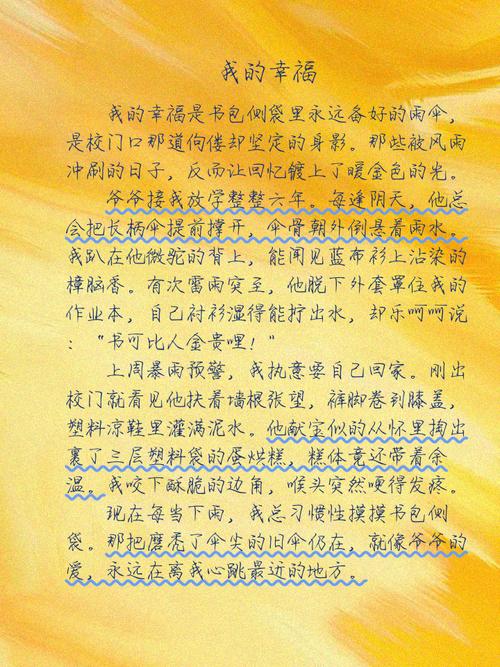 我的幸福
我的幸福是书包侧袋里永远备好的雨伞，
是校门口那道佝偻却坚定的身影。那些被风雨
冲刷的日子，反而让回忆镀上了暖金色的光。
爷爷接我放学整整六年。每逢阴天，他总
会把长柄伞提前撑开，伞骨朝外倒悬着雨水。
我趴在他微驼的背上，能闻见蓝布衫上沾染的
樟脑香。有次雷雨突至，他脱下外套罩住我的
作业本，自己衬衫湿得能拧出水，却乐呵呵说
：“书可比人金贵哩！”
上周暴雨预警，我执意要自己回家。刚出
校门就看见他扶着墙根张望，裤脚卷到膝盖，
塑料凉鞋里灌满泥水。他献宝似的从怀里掏出
裹了三层塑料袋的蛋烘糕，糕体竟还带着余
温。我咬下酥脆的边角，喉头突然哽得发疼。
现在每当下雨，我总习惯性摸摸书包侧
袋。那把磨秃了伞尖的旧伞仍在，就像爷爷的
爱，永远在离我心跳最近的地方。